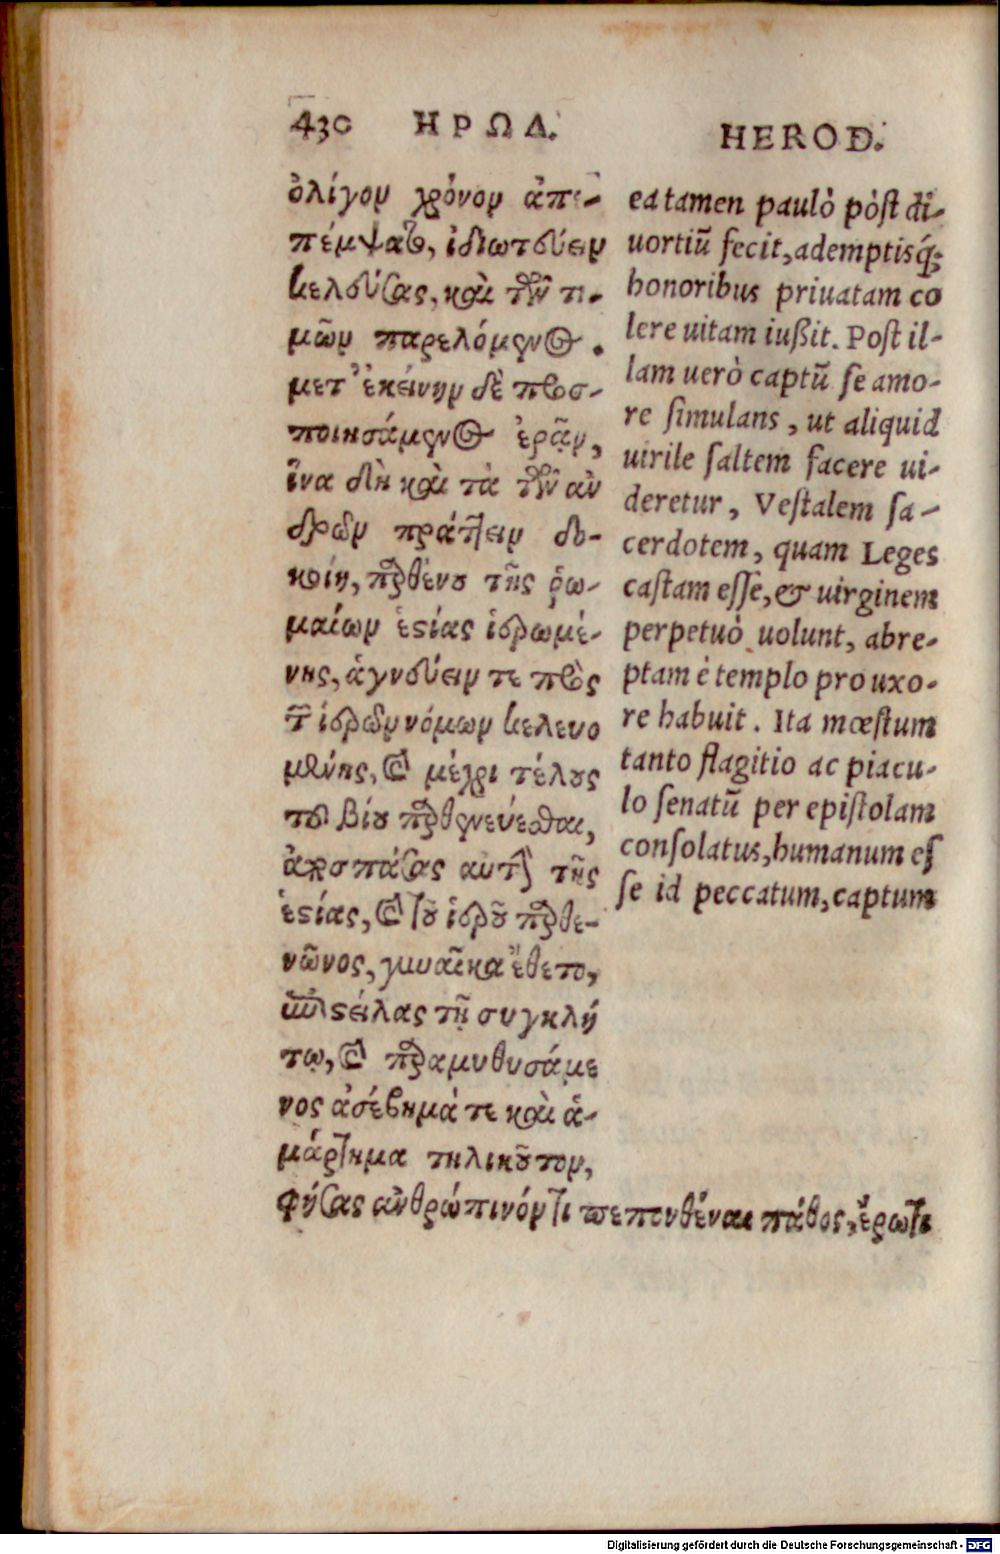 430 ΗΡΩΔ.
ὀλίγον χρόνον ἀπε-
πέμψατο, ἰδιωτεύειν
κελεύσας, καὶ τῶν τι-
μῶν παρελόμενος.
μετ᾽ ἐκείνην δὲ προσ-
ποιησάμενος ἐρᾷν,
ἵνα δὴ καὶ τὰ τῶν ἀν
δρῶν πράττειν δο-
κοίη, παρθένου τῆς ῥω-
μαίων ἑστίας ἱερωμέ-
νης, ἁγνεύειν τε πρὸς
τῶν ἱερῶν νόμων κελευο
μένης, καὶ μέχρι τέλους
τοῦ βίου παρθενεύεσθαι,
ἀποσπάσας αὐτὴν τῆς
ἑστίας, καὶ τοῦ ἱεροῦ παρθε-
νῶνος, γυναῖκα ἔθετο,
ἐπιστείλας τῇ συγκλή
τῳ, καὶ παραμυθησάμε
νος ἀσέβημά τε καὶ ἁ-
μάρτημα τηλικοῦτον,
φήσας ἀνθρώπινόν τι πεπονθέναι πάθος, ἔρωτι
HEROD.
ea tamen paulò pòst di-
uortiũ fecit, ademptisq́;
honoribus priuatam co
lere uitam iußit. Post il-
lam uerò captũ se amo-
re simulans, ut aliquid
uirile saltem facere ui-
deretur, Vestalem sa-
cerdotem, quam Leges
castam esse, & uirginem
perpetuò uolunt, abre-
ptam è templo pro uxo-
re habuit. Ita mœstum
tanto flagitio ac piacu-
lo senatũ per epistolam
consolatus, humanum es
se id peccatum, captum
Digitalisierung gefördert durch die Deutsche Forschungsgemeinschaft - DFG